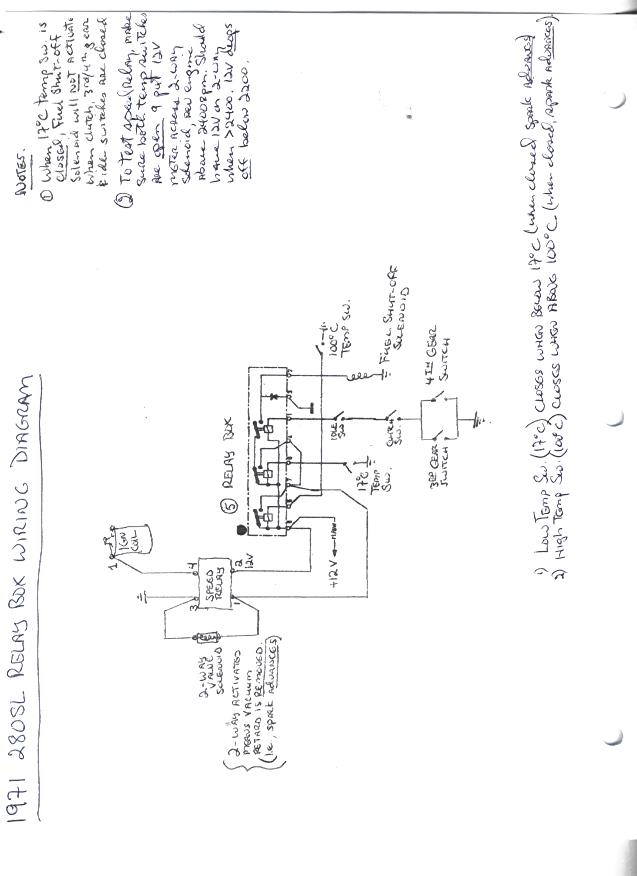 1971 280SL RELAY BOX WIRING DIAGRAM
NOTES.
① When 17°C Temp Sw. is
closed, Fuel Shut-off
Solenoid will NOT activate
when clutch, 3rd/4th gear
& idle switches are closed
② To Test speed Relay, make
sure both temp. switches
are open & put 12V
meter across 2-way
solenoid, rev engine
above 2400 rpm. Should
have 12V on 2-way
when >2400. 12V drops
off below 2200.
1
IGN
COIL
3
4
SPEED
RELAY
1
2
12V
2-WAY
VALVE
SOLENOID
2-WAY ACTIVATED
MEANS VACUUM
RETARD IS REMOVED.
(i.e., spark ADVANCES)
⑤ RELAY BOX
+12V
17°C
TEMP
SW.
IDLE
SW.
CLUTCH
SW.
100°C
TEMP SW.
FUEL SHUT-OFF
SOLENOID
3RD GEAR
SWITCH
4TH GEAR
SWITCH
1) Low Temp Sw. (17°C) CLOSES WHEN BELOW 17°C (when closed spark ADVANCES)
2) High Temp Sw. (100°C) CLOSES WHEN ABOVE 100°C (when closed, spark ADVANCES)